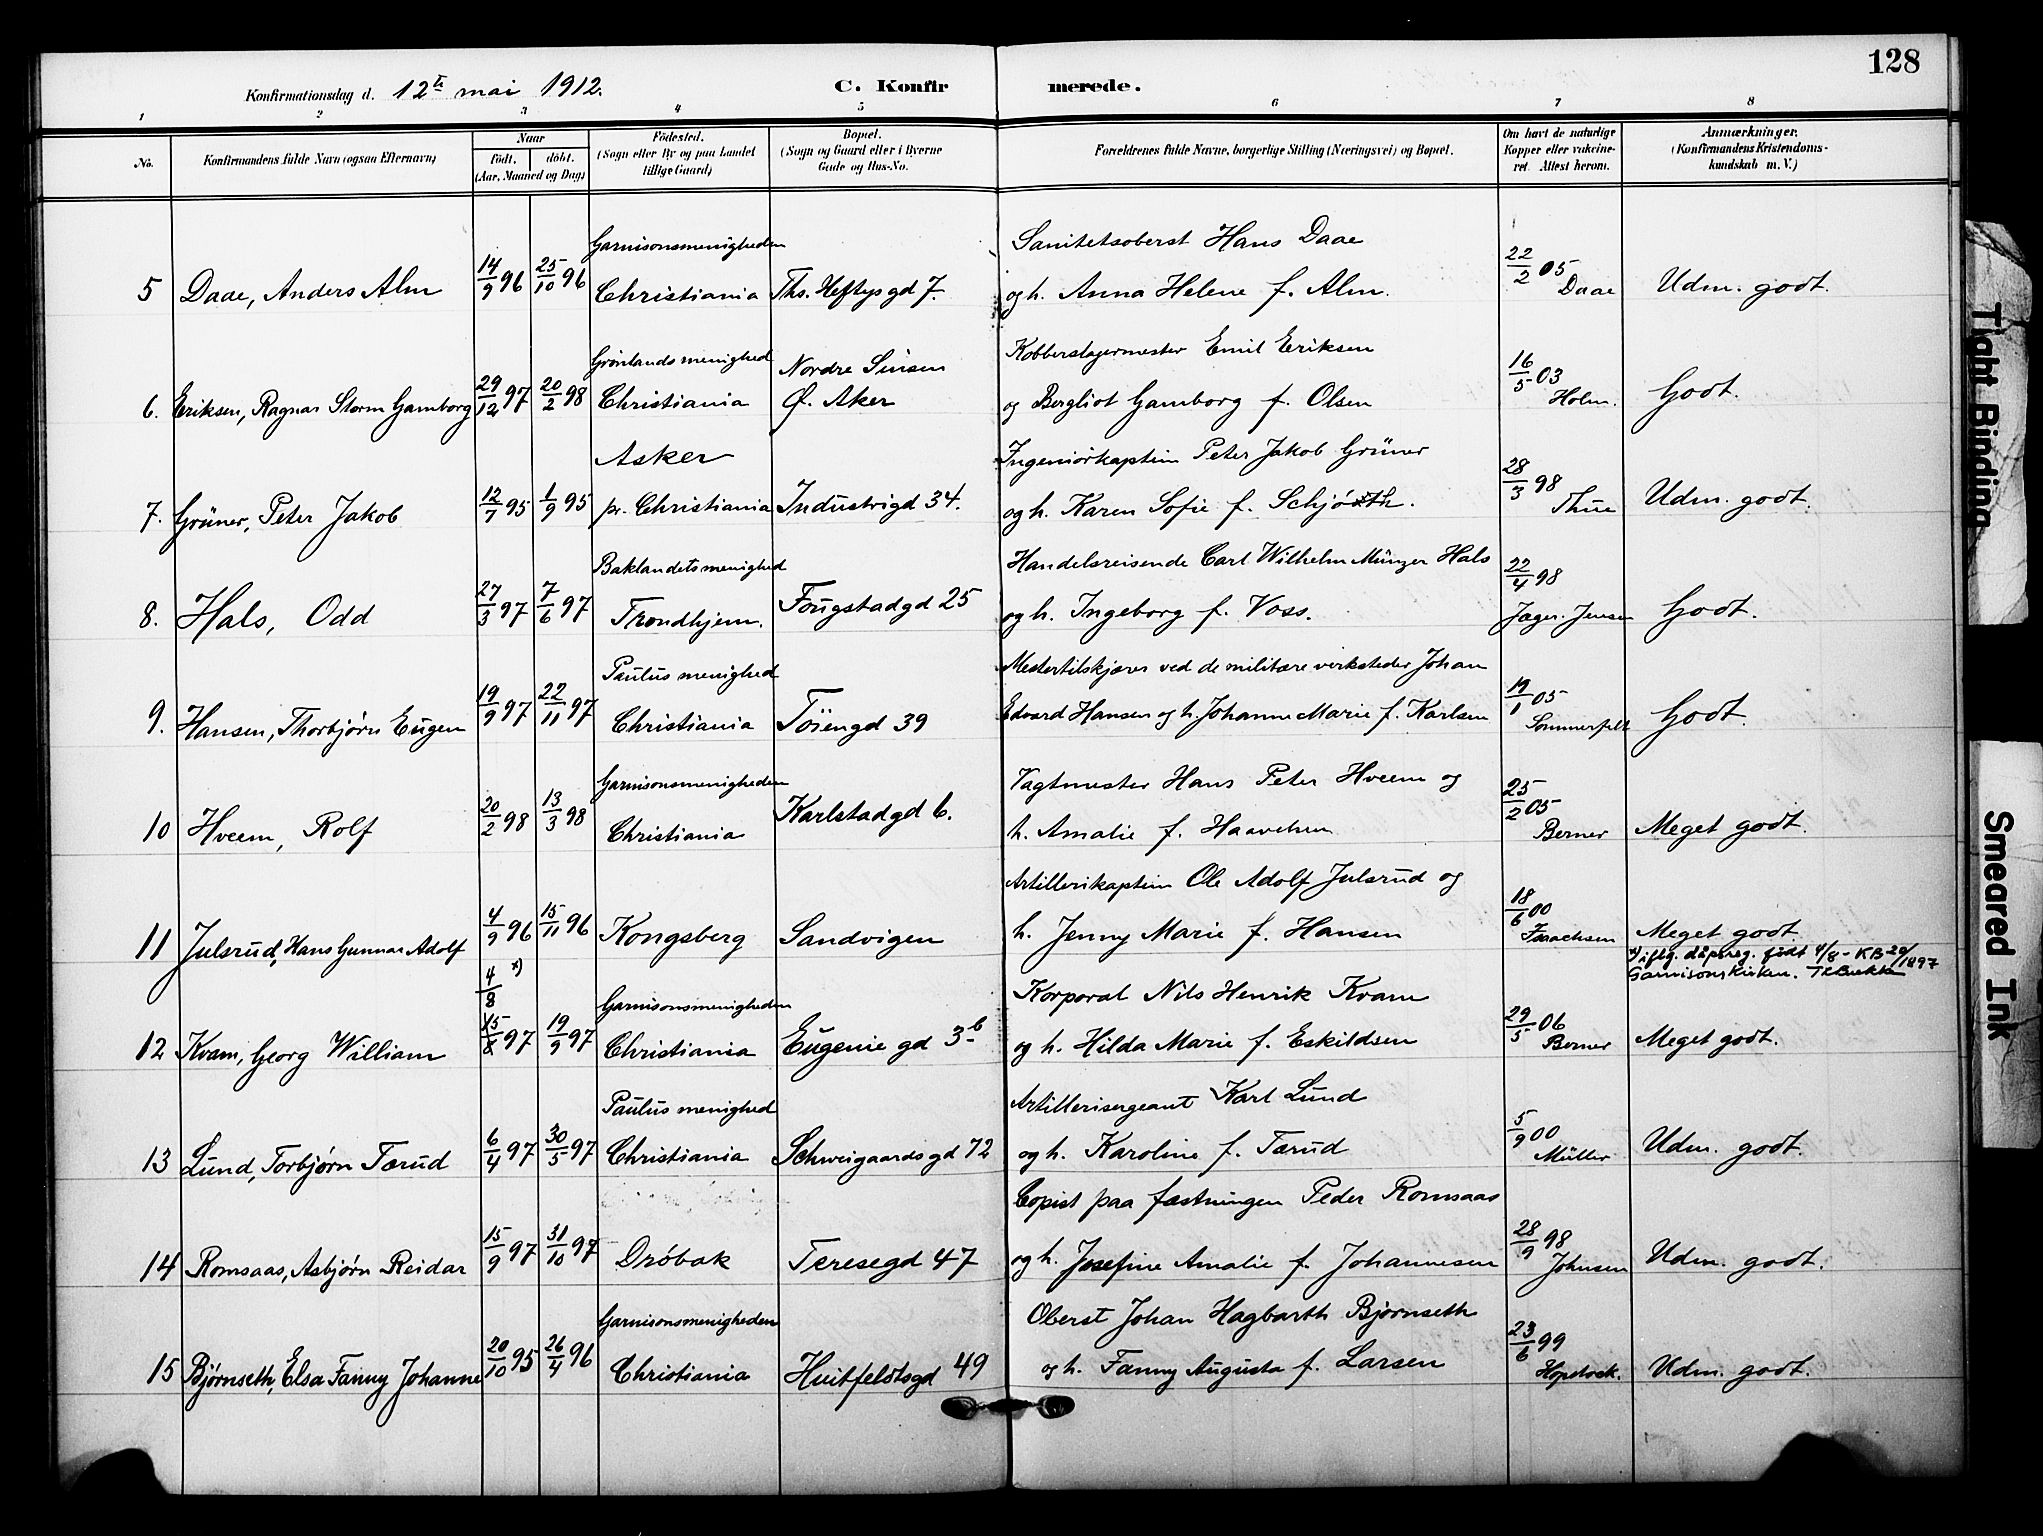 128
Konfirmationsdag d. 12te mai 1912. C. Konfirmerede.
1 2 3 4 5 6 7 8
No. Konfirmandens fulde Navn (ogsaa Efternavn) Naar født, døbt. (Aar, Maaned og Dag) Fødested. (Sogn eller By og paa Landet tillige Gaard) Bopæl. (Sogn og Gaard eller i Byerne Gade og Hus-No. Forældrenes fulde Navne, borgerlige Stilling (Næringsvei) og Bopæl. Om havt de naturlige Kopper eller vakcineret. Attest herom. Anmærkninger. (Konfirmandens Kristendomskundskab m. V.)
Garnisonsmenigheden Sanitetsoberst Hans Daae
5 Daae, Anders Alm 14/9 96 25/10 96 Christiania Ths. Heftys gd 7. og h. Anna Helene f. Alm. 22/2 05 Daae Udm. godt.
Grønlands menighed Nordre Sinsen Kobberslagermester Emil Eriksen
6. Eriksen, Ragnar Storm Gamborg 29/12 97 20/2 98 Christiania Ø. Aker og Bergliot Gamborg f. Olsen 16/5 03 Holm. Godt.
Asker Ingeniørkaptein Peter Jakob Grüner
7. Grüner, Peter Jakob 12/7 95 1/9 95 pr. Christiania Industrigd 34. og h. Karen Sofie f. Schjøth. 28/3 98 Thue Udm. godt.
Baklandets menighed Handelsreisende Carl Wilhelm Münzer Hals
8. Hals, Odd 27/3 97 7/6 97 Trondhjem. Fougstadgd 25 og h. Ingeborg f. Voss. 22/4 98 Jæger. Jensen Godt.
Paulus menighed Mestertilskjærer ved de militære verksteder Johan
9. Hansen, Thorbjørn Eugen 19/9 97 22/11 97 Christiania Tøiengd 39 Edvard Hansen og h. Johanne Marie f. Karlsen 19/1 05 Sommerfelt Godt.
Garnisonsmenigheden Vagtmester Hans Peter Hveem og
10 Hveem, Rolf 20/2 98 13/3 98 Christiania Karlstadgd 6. h. Amalie f. Haavelsen 25/2 05 Berner Meget godt.
Artillerikaptein Ole Adolf Julsrud og
11 Julsrud, Hans Gunnar Adolf 4/9 96 15/11 96 Kongsberg Sandvigen h. Jenny Marie f. Hansen 18/6 00 Isaachsen Meget godt.
4/8 x) Garnisonsmenigheden Korporal Nils Henrik Kvam x) iflg. dåpsreg. født 4/8 - KB 20/1897
Garnisonskirken.
12 Kvam, Georg William 15/8 97 19/9 97 Christiania Eugenie gd 3b og h. Hilda Marie f. Eskildsen 29/5 06 Berner Meget godt.
Paulus menighed Artillerisergeant Karl Lund
13 Lund, Torbjørn Tærud 6/4 97 30/5 97 Christiania Schweigaards gd 72 og h. Karoline f. Tærud 5/9 00 Müller Udm. godt.
Copist paa fæstningen Peder Romsaas
14 Romsaas, Asbjørn Reidar 15/9 97 31/10 97 Drøbak Teresegd 47 og h. Josefine Amalie f. Johannesen 28/9 98 Johnsen Udm. godt.
Garnisonsmenigheden Oberst Johan Hagbarth Bjørnseth
15 Bjørnseth, Elsa Fanny Johanne 20/10 95 26/4 96 Christiania Huitfeldtsgd 49 og h. Fanny Augusta f. Larsen 23/6 99 Hopstock. Udm. godt.
Tight Binding
Smeared Ink